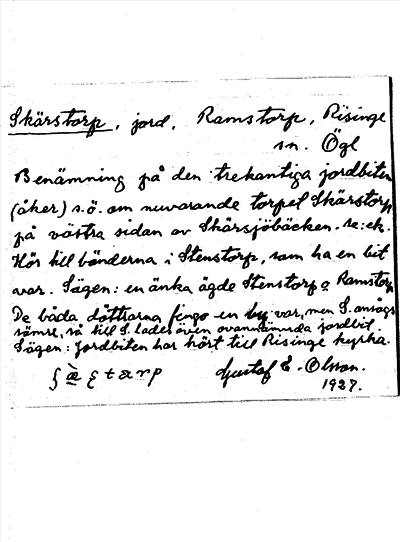 Skärstorp, jord, Ramstorp, Risinge
sn. Ögl
Benämning på den trekantiga jordbiten
(åker) s.ö. om nuvarande torpet Skärstorp
på västra sidan av Skärsjöbäcken. Se: ek.
Hör till bönderna i Stenstorp, som ha en bit
var. Sägen: en änka ägde Stenstorp o Ramstorp
De båda döttrarna fingo en by var, men S. ansågs
sämre, så till S. lades även ovannämnda jordbit.
Sägen: Jordbiten har hört till Risinge kyrka.
Gustaf E. Olsson.
1927.